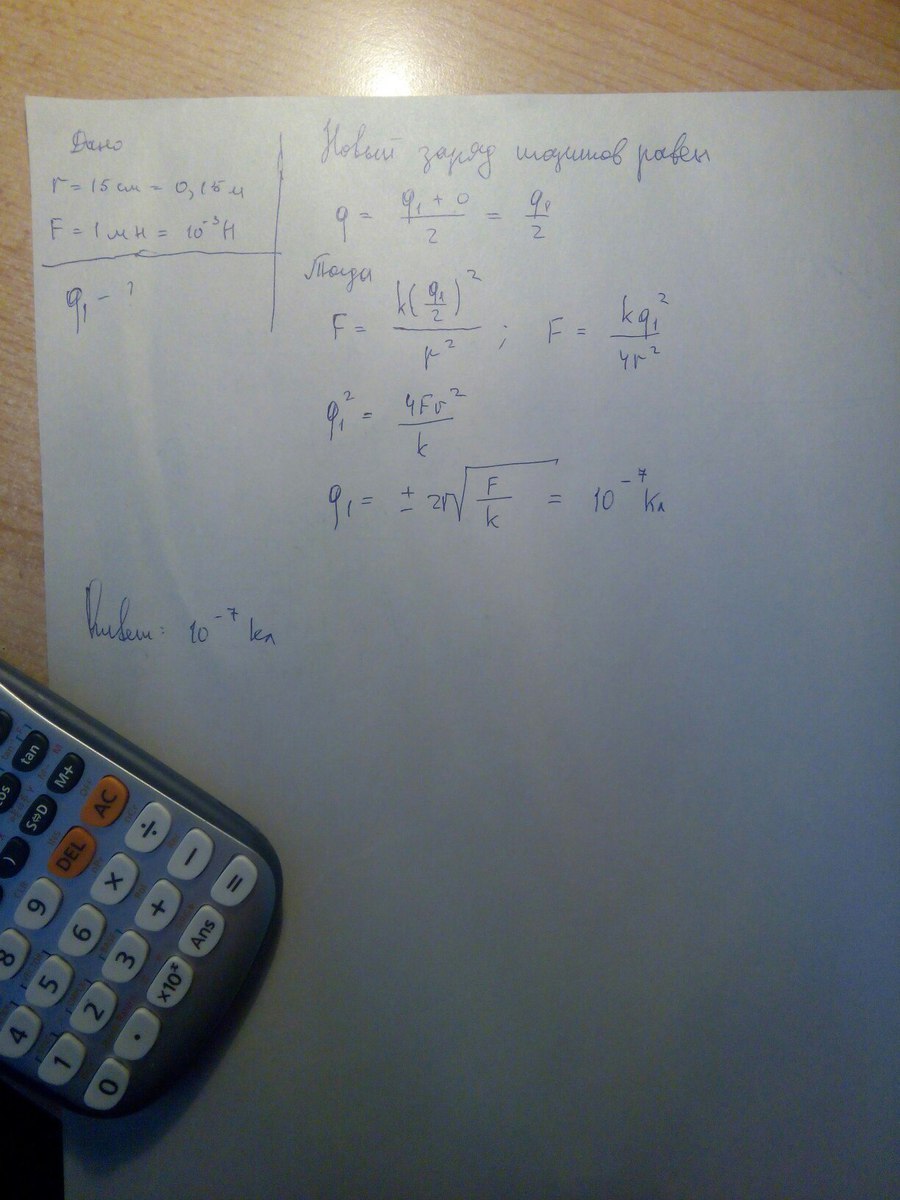 Дано
r = 15 см = 0,15 м
F = 1 мН = 10⁻³ Н
q₁ - ?
Новый заряд шариков равен
q = (q₁ + 0)/2 = q₁/2
Тогда
F = k(q₁/2)²/r² ; F = kq₁²/4r²
q₁² = 4Fr²/k
q₁ = ± 2r√(F/k) = 10⁻⁷ Кл
Ответ: 10⁻⁷ Кл
tan
cos
M+
S⇔D
AC
)
DEL
÷
9
×
−
8
6
+
=
5
3
Ans
4
2
×10ˣ
1
.
0